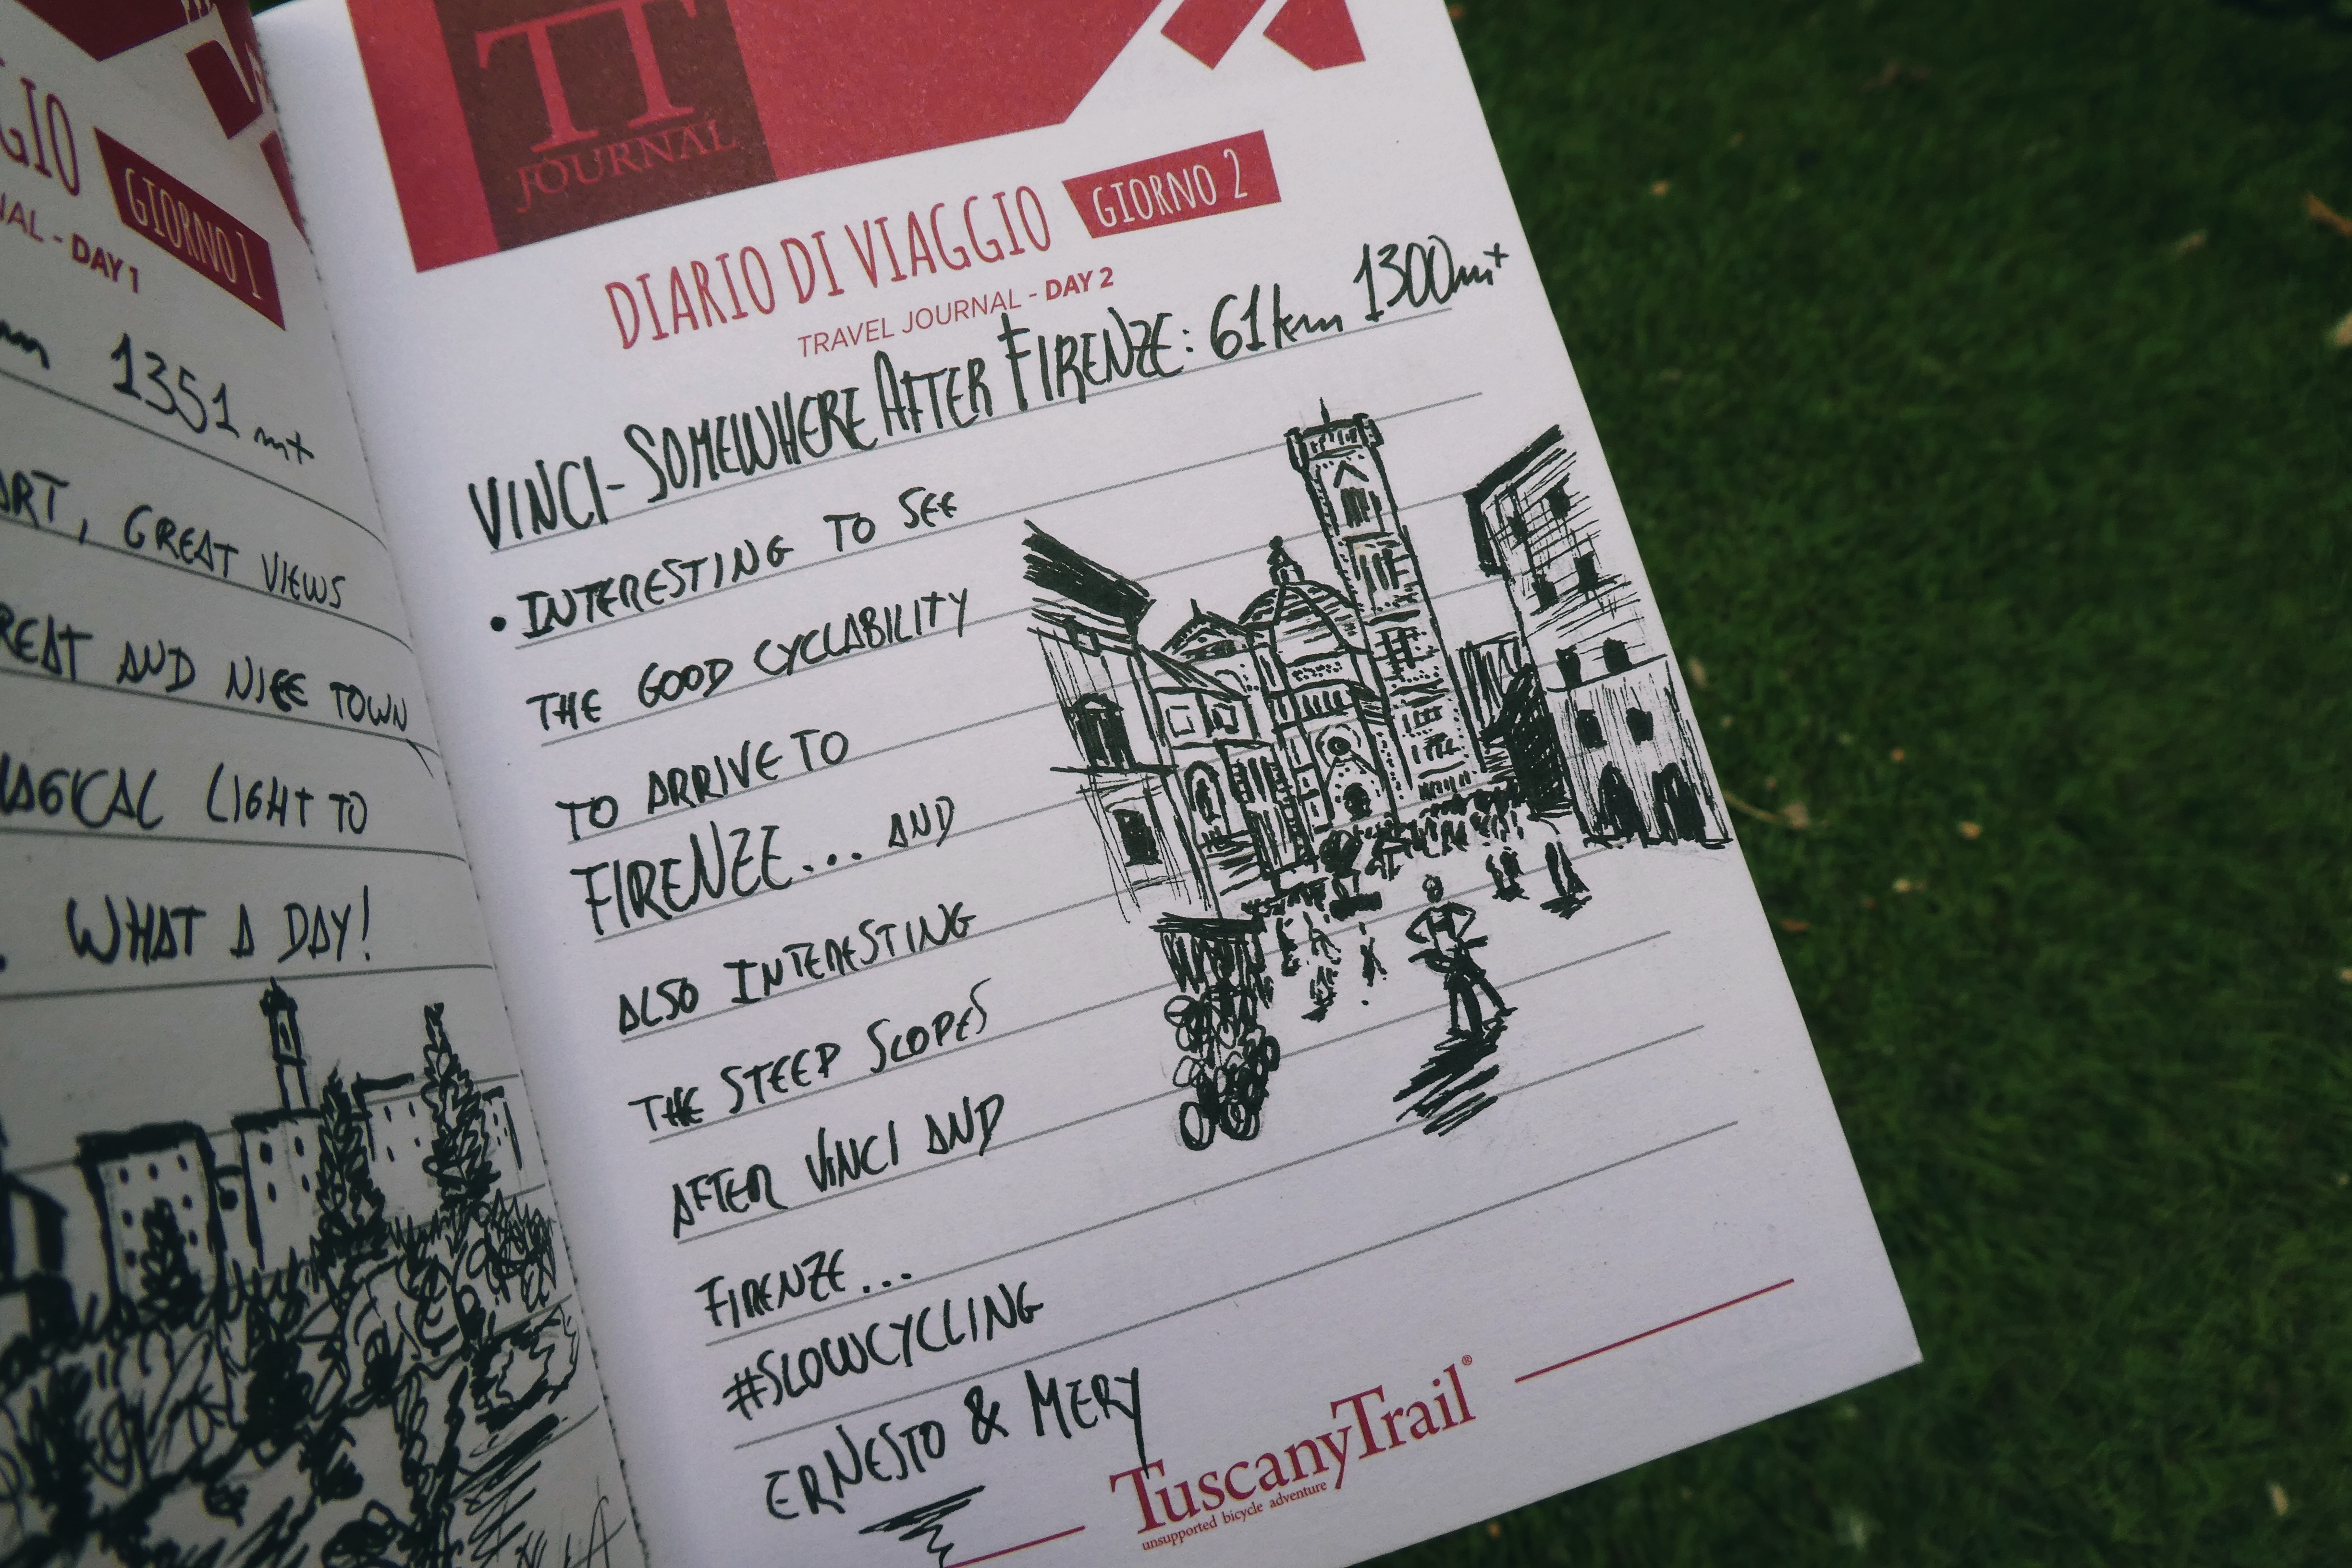 GIO
GIORNO 1
NAL - DAY 1
1351 m+
ART, GREAT VIEWS
REAT AND NICE TOWN,
MAGICAL LIGHT TO
. WHAT A DAY!
TT
JOURNAL
DIARIO DI VIAGGIO GIORNO 2
TRAVEL JOURNAL - DAY 2
VINCI- SOMEWHERE AFTER FIRENZE: 61km 1300m+
• INTERESTING TO SEE
THE GOOD CYCLABILITY
TO ARRIVE TO
FIRENZE... AND
ALSO INTERESTING
THE STEEP SLOPES
AFTER VINCI AND
FIRENZE...
#SLOWCYCLING
ERNESTO & MERY
TuscanyTrail®
unsupported bicycle adventure